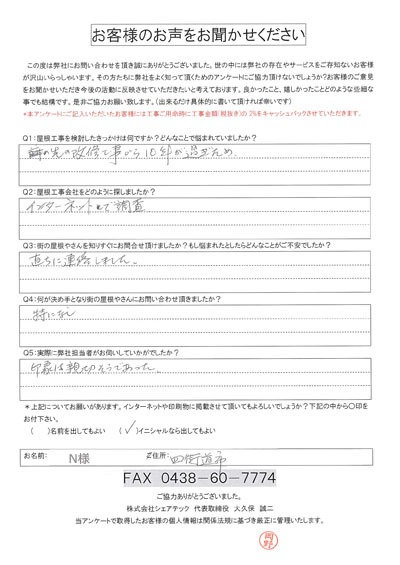 お客様のお声をお聞かせください
この度は弊社にお問い合わせを頂き誠にありがとうございました。世の中には弊社の存在やサービスをご存知ないお客様
が沢山いらっしゃいます。その方たちに弊社をよく知って頂くためのアンケートにご協力頂けないでしょうか?お客様のご意見
をお聞かせいただき今後の活動に反映させていただきたいと考えております。良かったこと、嬉しかったことどのような些細な
事でも結構です。是非ご協力お願い致します。(出来るだけ具体的に書いて頂ければ幸いです)
*本アンケートにご記入いただいたお客様には工事ご用命時に工事金額(税抜き)の2%をキャッシュバックさせていただきます。
Q1:屋根工事を検討したきっかけは何ですか?どんなことで悩まれていましたか?
の改修工事から10年が過ぎため
Q2:屋根工事会社をどのように探しましたか?
インターネットで調査
Q3:街の屋根やさんを知りすぐにお問合せ頂けましたか?もし悩まれたとしたらどんなことがご不安でしたか?
直ちに連絡しました。
Q4:何が決め手となり街の屋根やさんにお問い合わせ頂きましたか?
特になし
Q5:実際に弊社担当者がお伺いしていかがでしたか?
印象は親切そうであった。
*上記についてお願いがあります。インターネットや印刷物に掲載させて頂いてもよろしいでしょうか?下記の中から〇印を
お付下さい。
( )名前を出してもよい (✓)イニシャルなら出してもよい
お名前: N様 ご住所: 四街道市
FAX 0438-60-7774
ご協力ありがとうございました。
株式会社シェアテック 代表取締役 大久保 誠二
当アンケートで取得したお客様の個人情報は関係法規に基づき厳正に管理いたします。